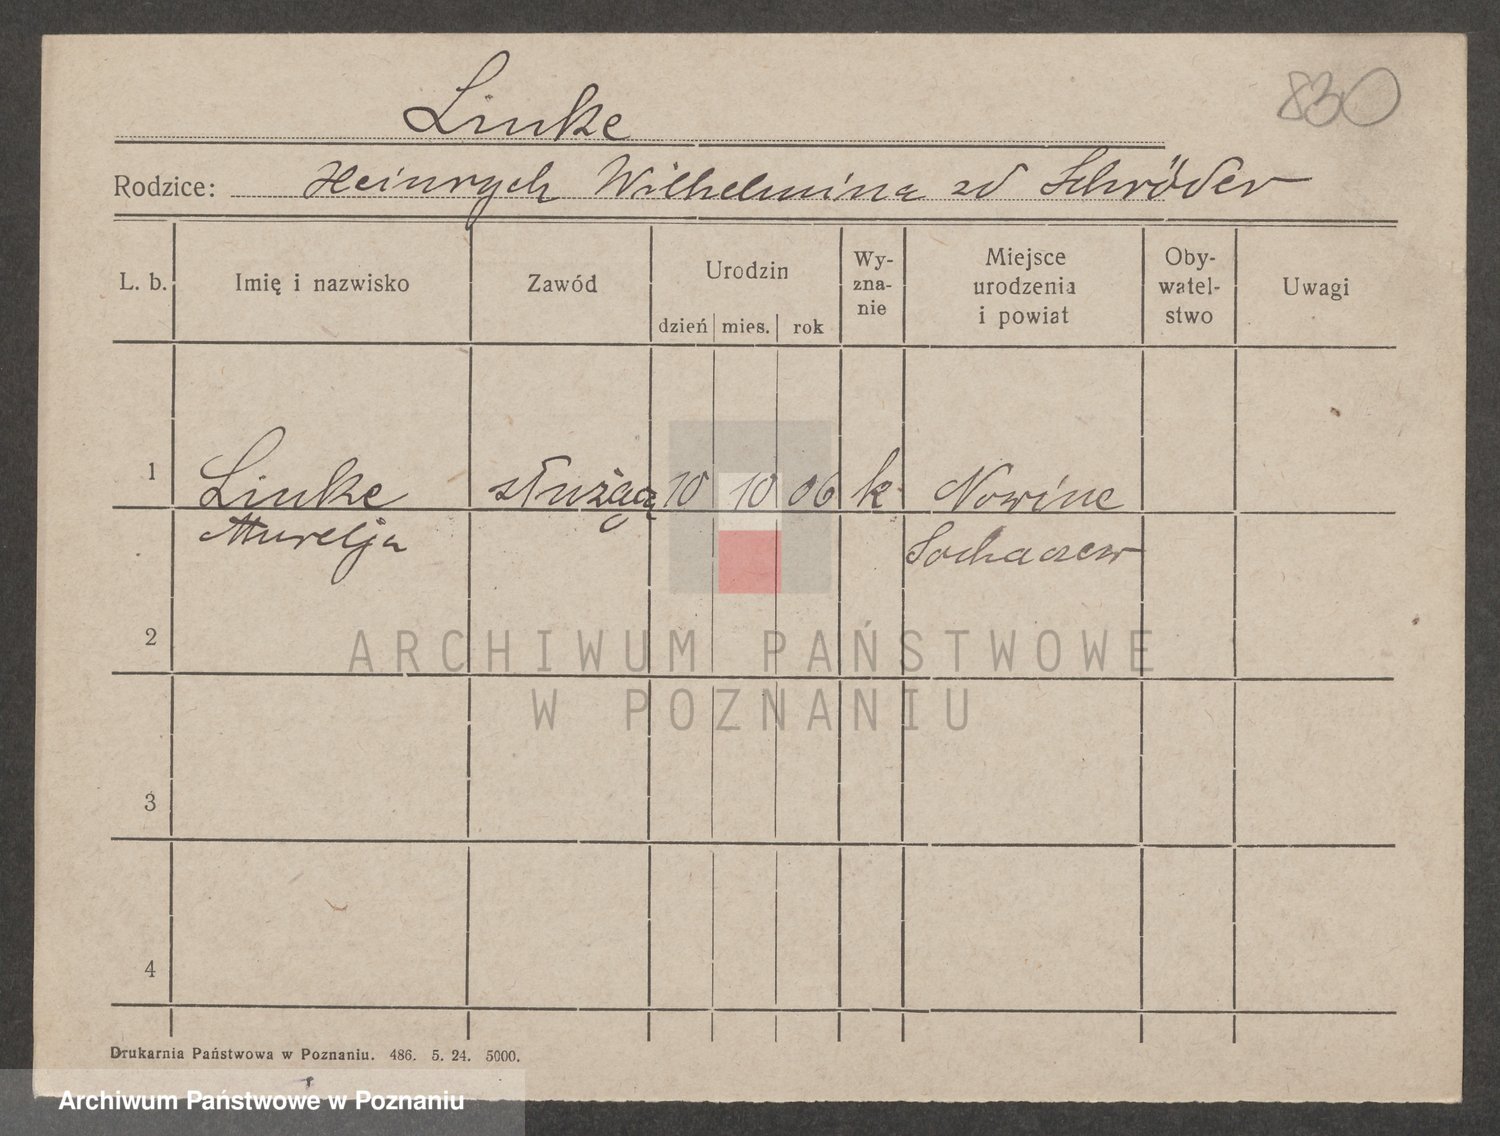 830
Linke
Rodzice: Heinrych Wilhelmina zd Schröder
L. b. Imię i nazwisko Zawód Urodzin dzień mies. rok Wy-zna-nie Miejsce urodzenia i powiat Oby-watel-stwo Uwagi
1 Linke służąca 10 10 06 k Nowine
Aurelja Sochaczew
2
ARCHIWUM PAŃSTWOWE
W POZNANIU
3
4
Drukarnia Państwowa w Poznaniu. 486. 5. 24. 5000.
Archiwum Państwowe w Poznaniu